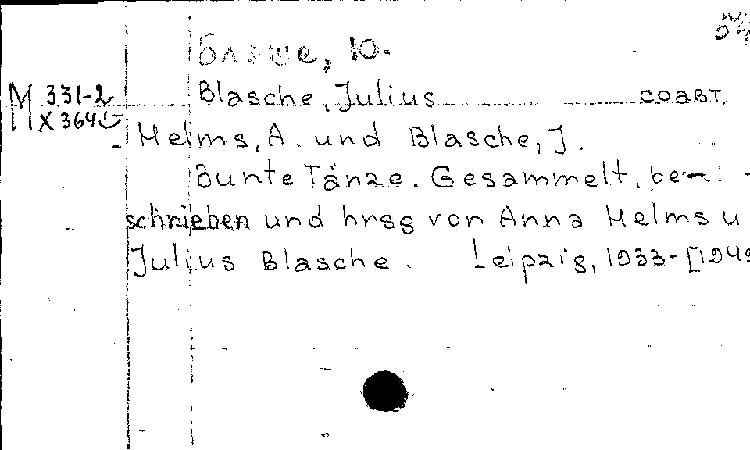 Блаше, Ю.
M 331-2 Blasche, Julius соавт.
X 364
Helms, A. und Blasche, J.
Bunte Tänze. Gesammelt, be-
schrieben und hrsg von Anna Helms u
Julius Blasche. Leipzig, 1933-[1949